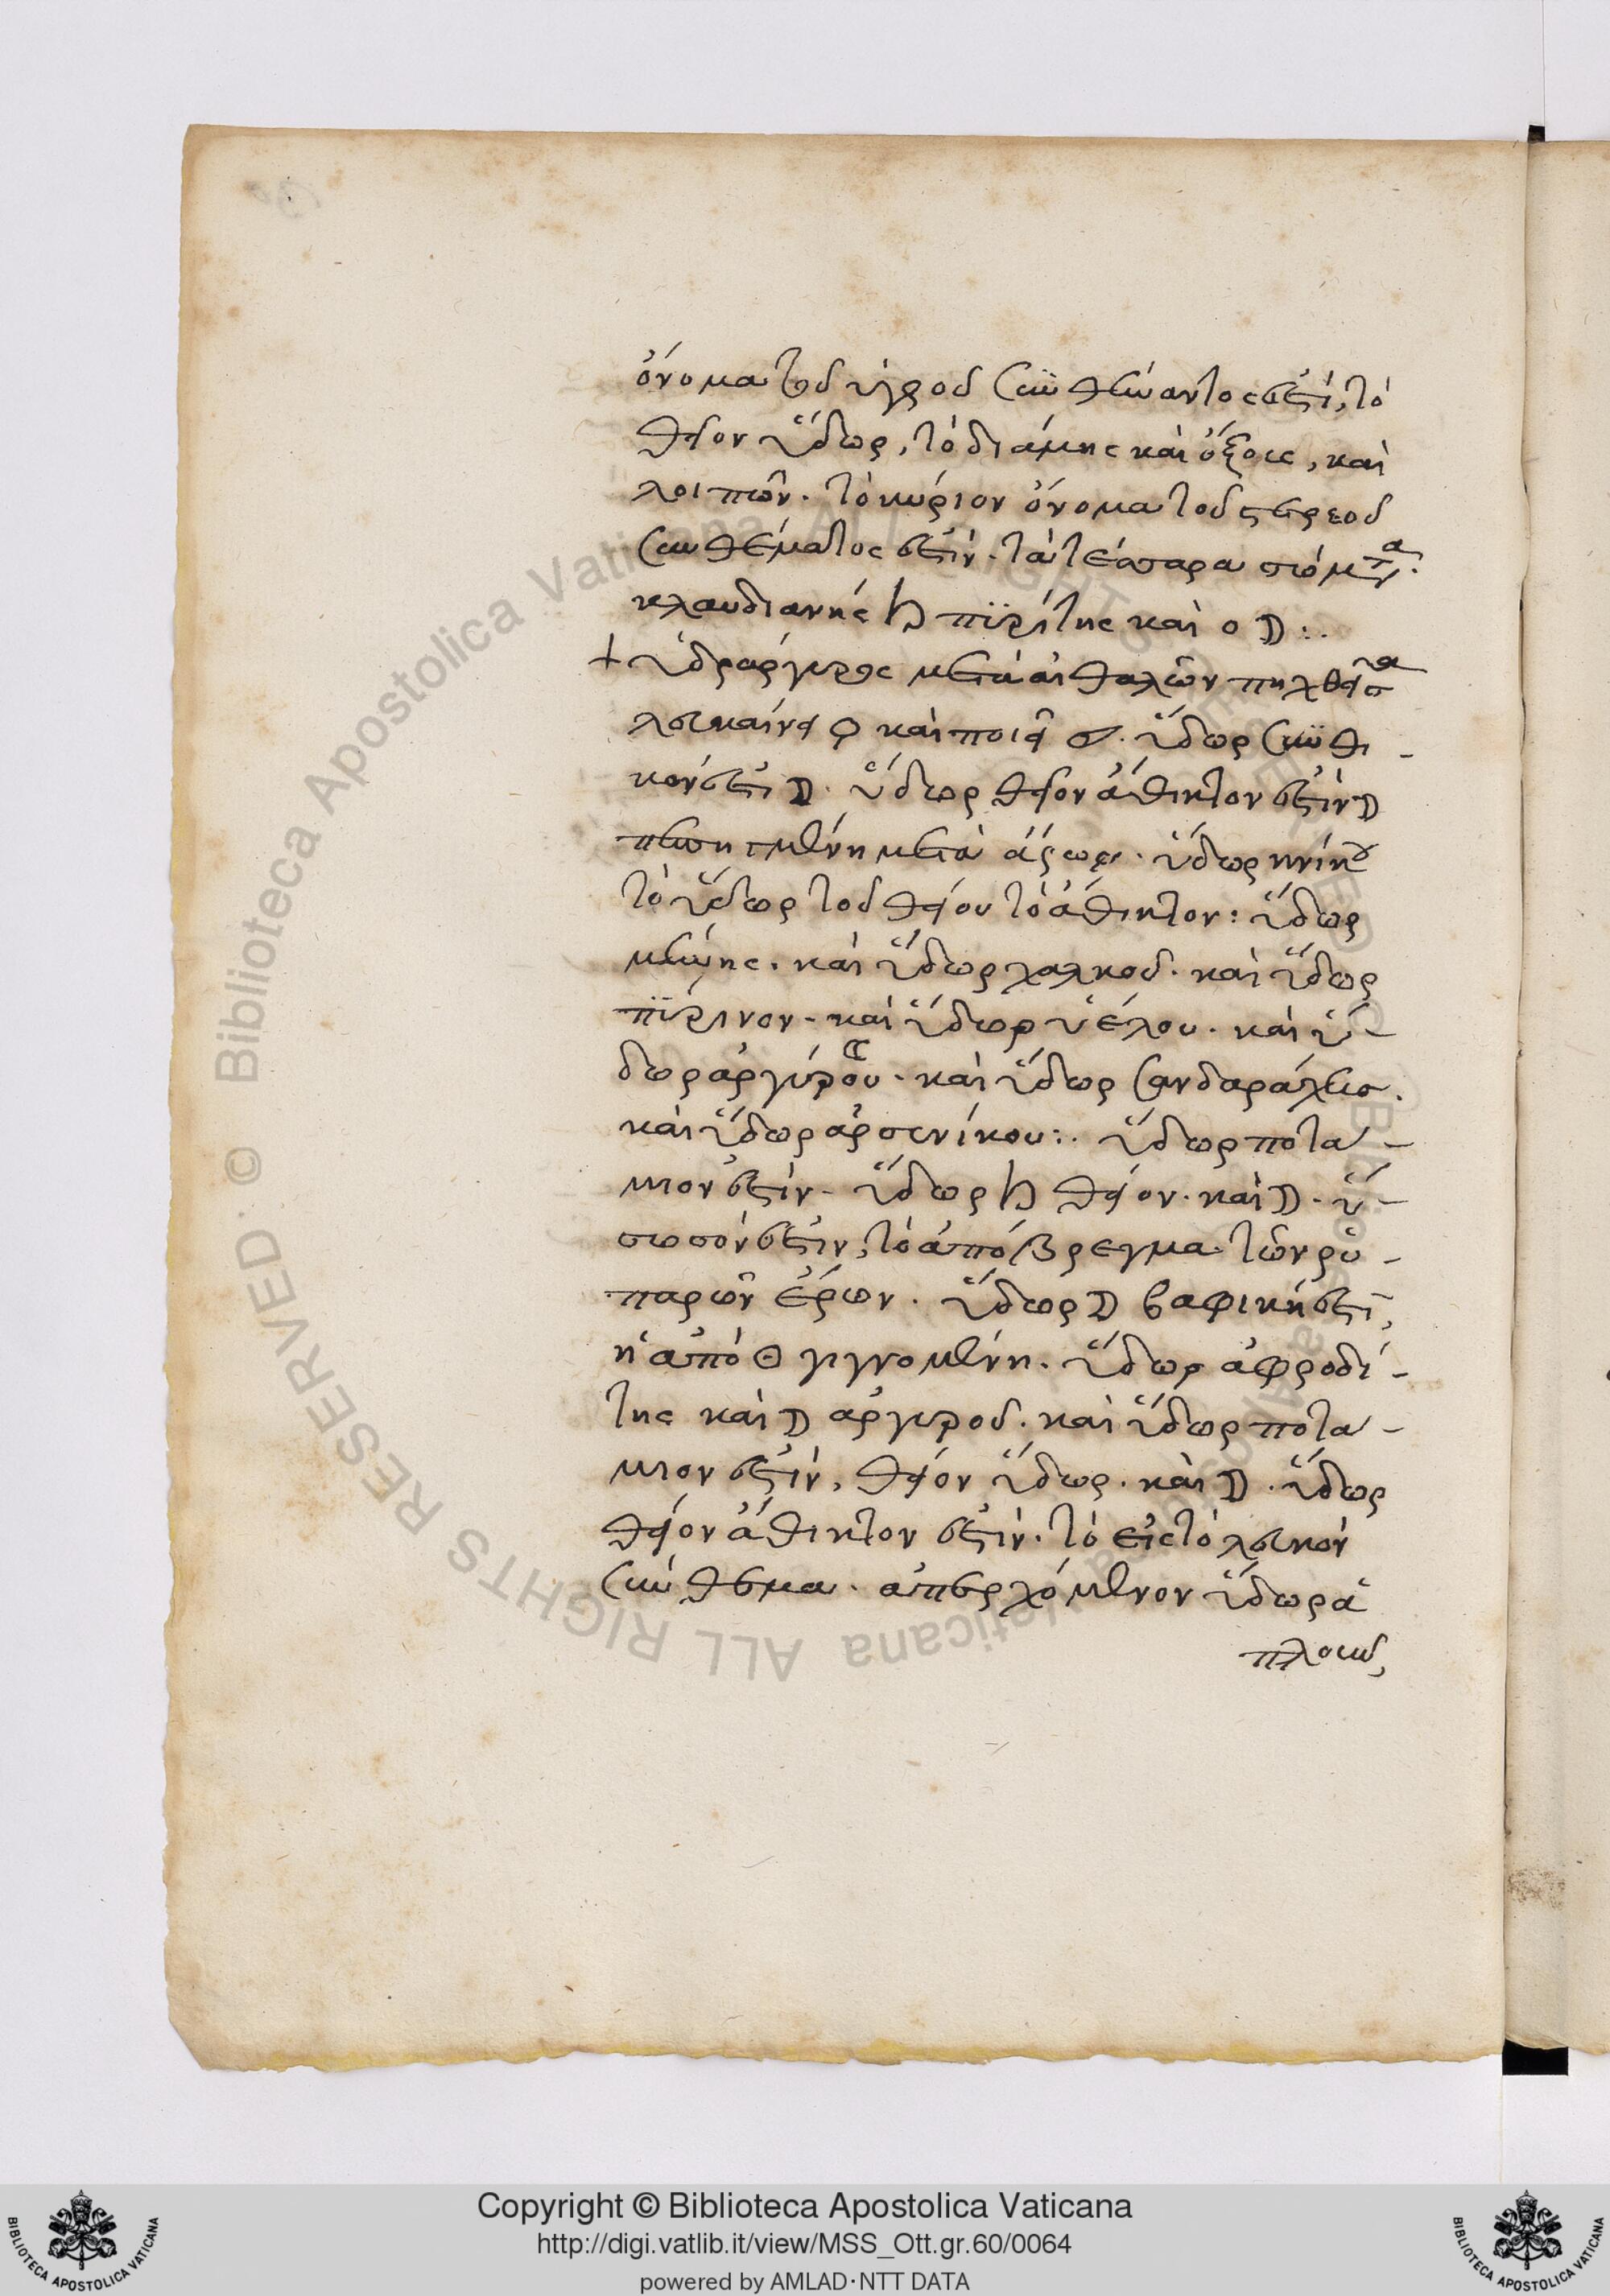 ὄνομα τοῦ ὑγροῦ συνθέματος ἐστί, τὸ
θεῖον ὕδωρ, τὸ δι ἅλμης καὶ ὄξους, καὶ
λοιπῶν. τὸ κύριον ὄνομα τοῦ στερεοῦ
συνθέματος ἐστίν. τὰ τέσσαρα σώματα.
κλαυδιανῆς ♄ πυρίτης καὶ ὁ ☽:.
+ ὑδράργυρος μετὰ αἰθαλῶν πηχθεῖσα
λευκαίνει ♀ καὶ ποιεῖ. ὕδωρ σκυθι-
κόν ἐστι ☽. ὕδωρ θεῖον ἄθικτον ἐστὶν ☽
μετὰ. ὕδωρ
τὸ ὕδωρ τοῦ θείου τὸ ἄθικτον: ὕδωρ
μήνης. καὶ ὕδωρ χαλκοῦ. καὶ ὕδωρ
πύρινον. καὶ ὕδωρ ὑέλου. καὶ ὕ-
δωρ ἀργύρου. καὶ ὕδωρ σανδαράχης.
καὶ ὕδωρ ἀρσενίκου:. ὕδωρ ποτα-
μιον ἐστίν. ὕδωρ ♄ θεῖον. καὶ ☽. ὕ-
σωσόν ἐστιν, τὸ ἀπόβρεγμα τῶν ῥυ-
παρῶν ἐρίων. ὕδωρ ☽ βαφική ἐστι,
ἡ ἀπὸ Θ γιγνομένη. ὕδωρ ἀφροδί-
της καὶ ☽ ἀργυροῦ. καὶ ὕδωρ ποτα-
μιον ἐστίν, θεῖον ὕδωρ. καὶ ☽. ὕδωρ
θεῖον ἄθικτον ἐστίν. τὸ εἰς τὸ λευκὸν
σύνθεμα. ἀπερχόμενον ὕδωρ ἁ
Copyright © Biblioteca Apostolica Vaticana
http://digi.vatlib.it/view/MSS_Ott.gr.60/0064
powered by AMLAD·NTT DATA
© Biblioteca Apostolica Vaticana ALL RIGHTS RESERVED
BIBLIOTECA APOSTOLICA VATICANA
BIBLIOTECA APOSTOLICA VATICANA